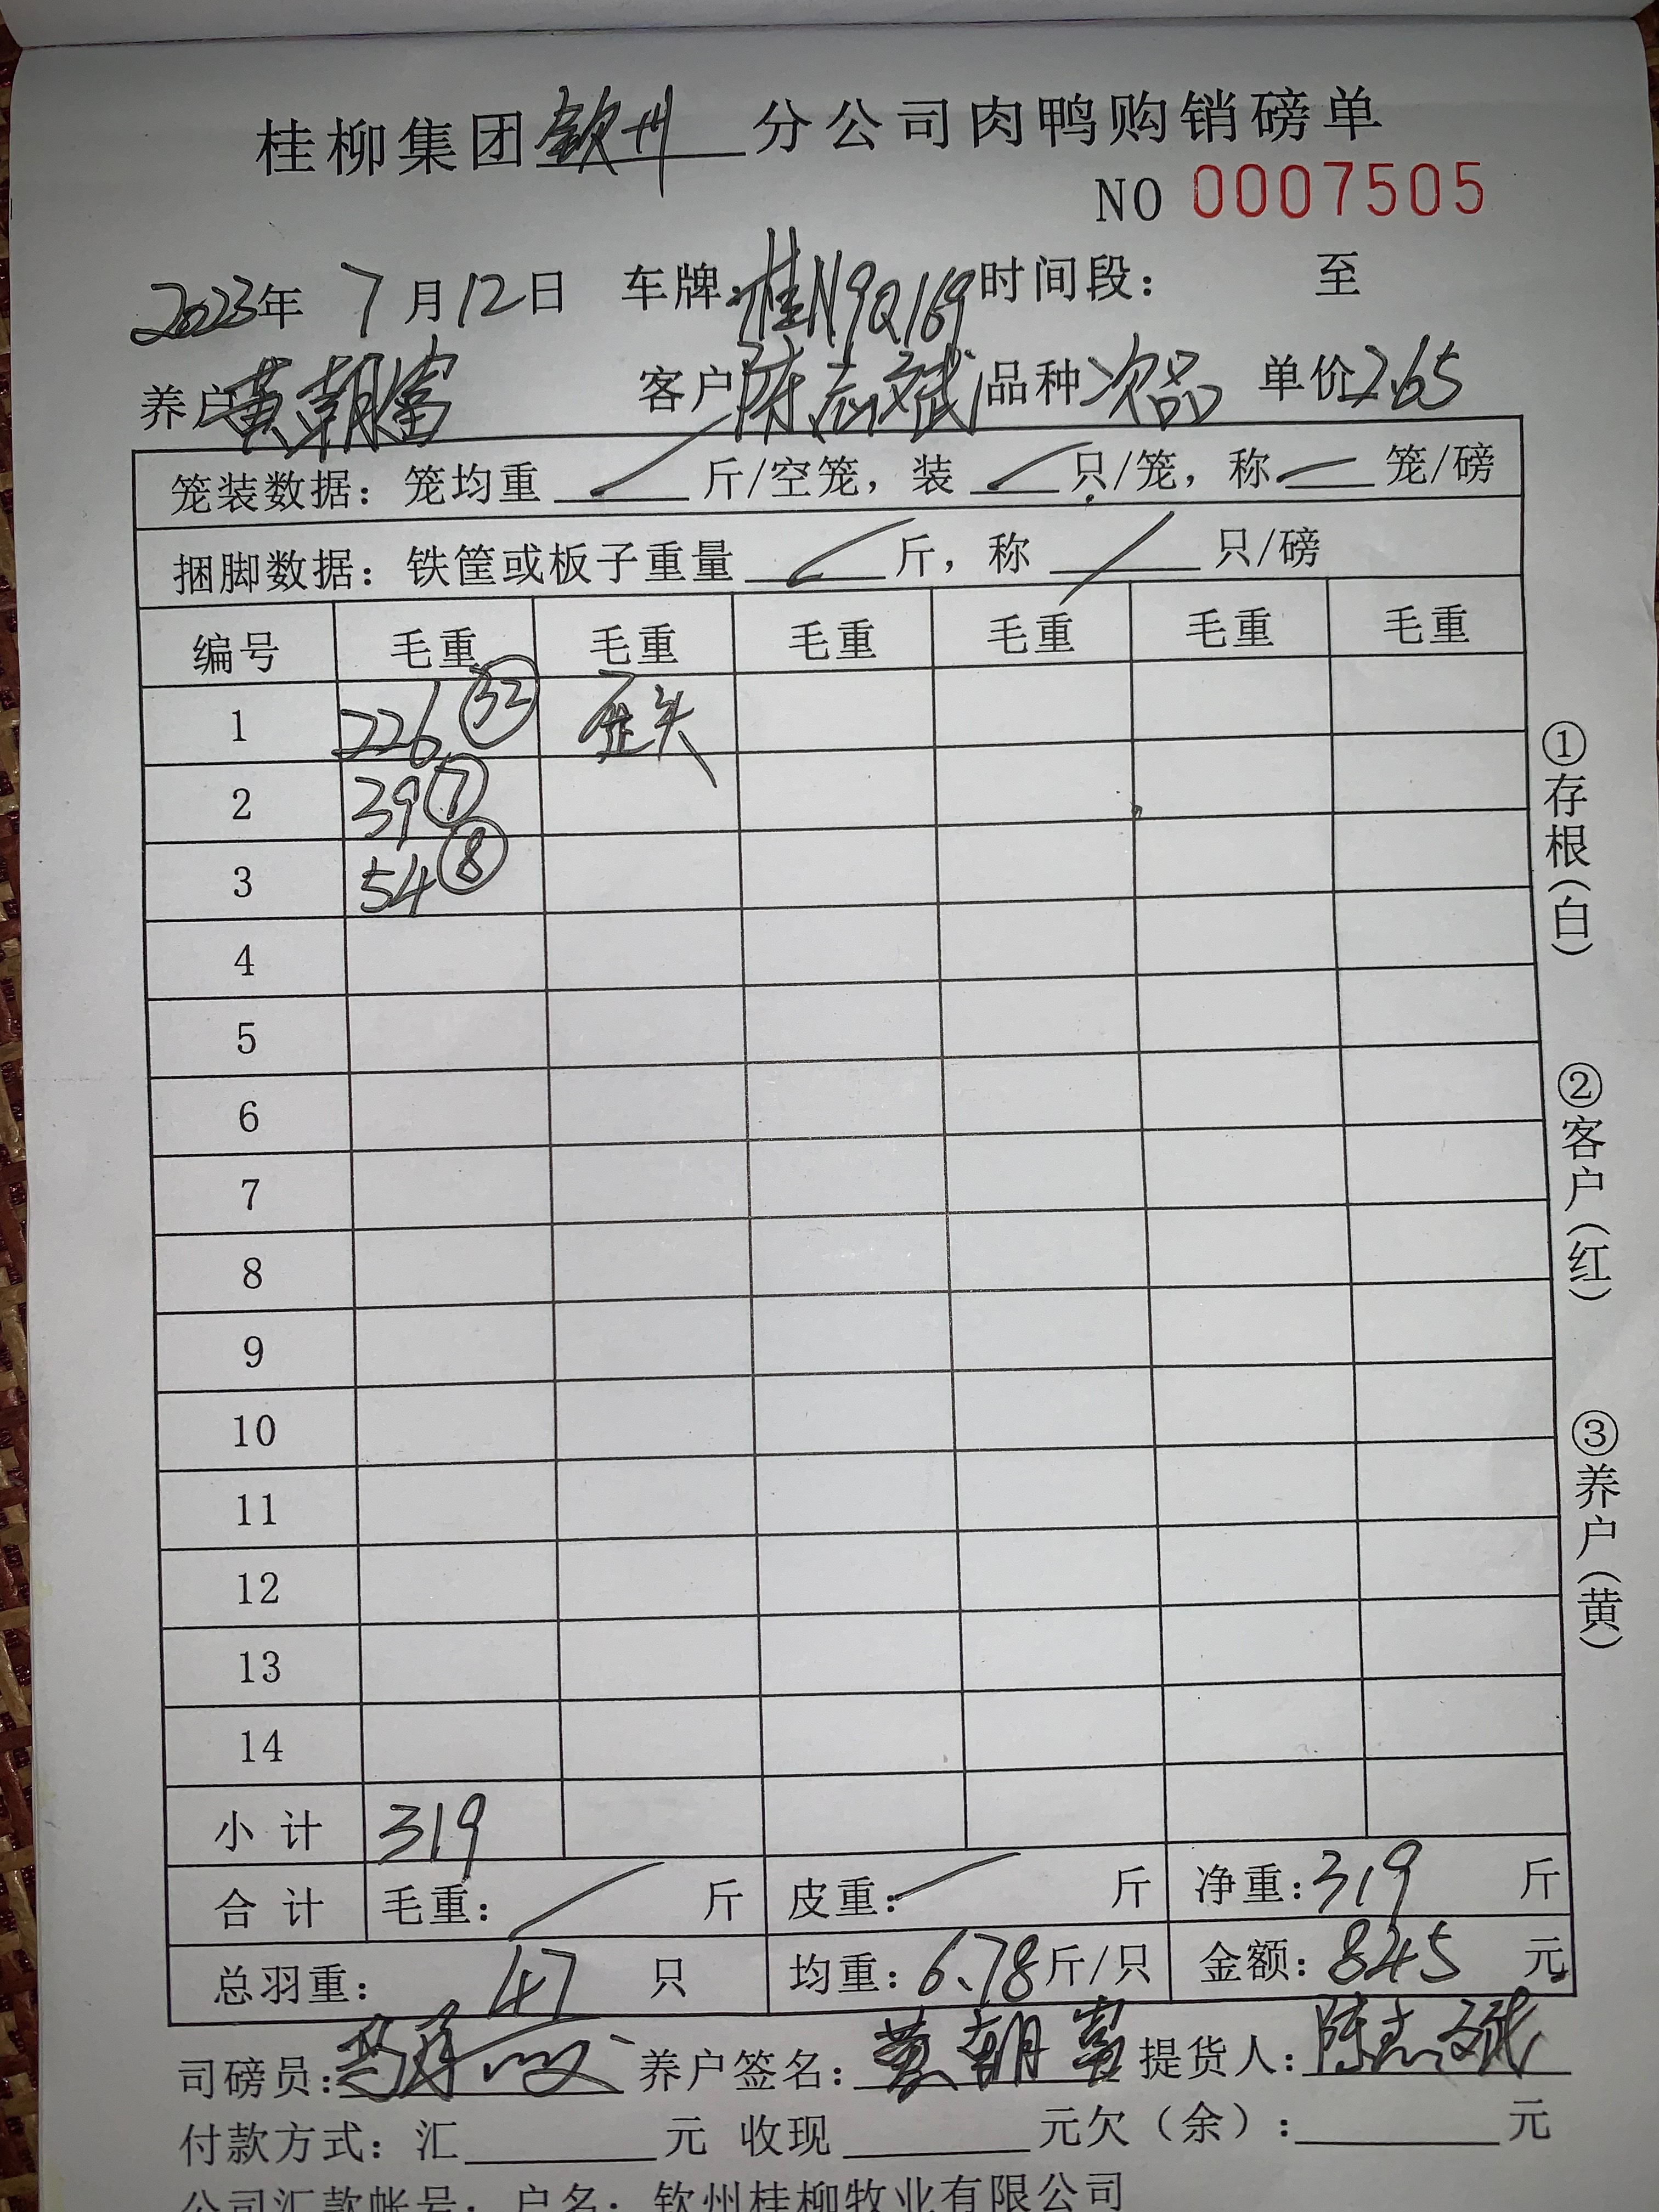 桂柳集团钦州分公司肉鸭购销磅单
NO 0007505
2023年 7月12日 车牌:桂N9Q169 时间段: 至
养户黄朝富 客户陈志斌 品种次品 单价2.65
笼装数据:笼均重 / 斤/空笼,装 / 只/笼,称 / 笼/磅
捆脚数据:铁筐或板子重量 / 斤,称 / 只/磅
编号 毛重 毛重 毛重 毛重 毛重 毛重
1 226 ㉜ 歪头
2 39 ⑦
3 54 ⑧
4
5
6
7
8
9
10
11
12
13
14
小计 319
合计 毛重: / 斤 皮重: / 斤 净重:319 斤
总羽重: 47 只 均重:6.78斤/只 金额:845 元
司磅员: 养户签名:黄朝富 提货人:陈志斌
付款方式:汇 元 收现 元欠(余): 元
公司汇款帐号:户名:钦州桂柳牧业有限公司
①存根(白)
②客户(红)
③养户(黄)